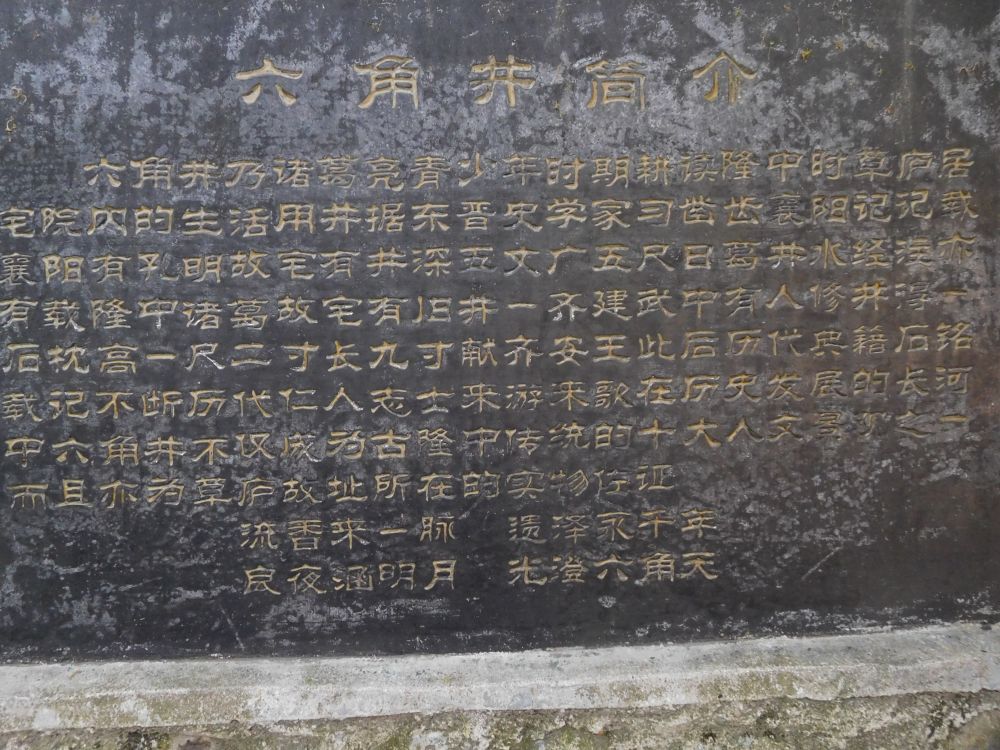 六角井简介
六角井乃诸葛亮青少年时期耕读隆中时草庐居
宅院内的生活用井据东晋史学家习凿齿襄阳记记载
襄阳有孔明故宅有井深五丈广五尺曰葛井水经注亦
有载隆中诸葛故宅有旧井一齐建武中有人修井得一
石枕高一尺二寸长九寸献齐安王此后历代典籍石铭
载记不断历代仁人志士来游来歌在历史发展的长河
中六角井不仅成为古隆中传统的十大人文景观之一
而且亦为草庐故址所在的实物佐证
流香来一脉 遗泽永千年
良夜涵明月 光澄六角天